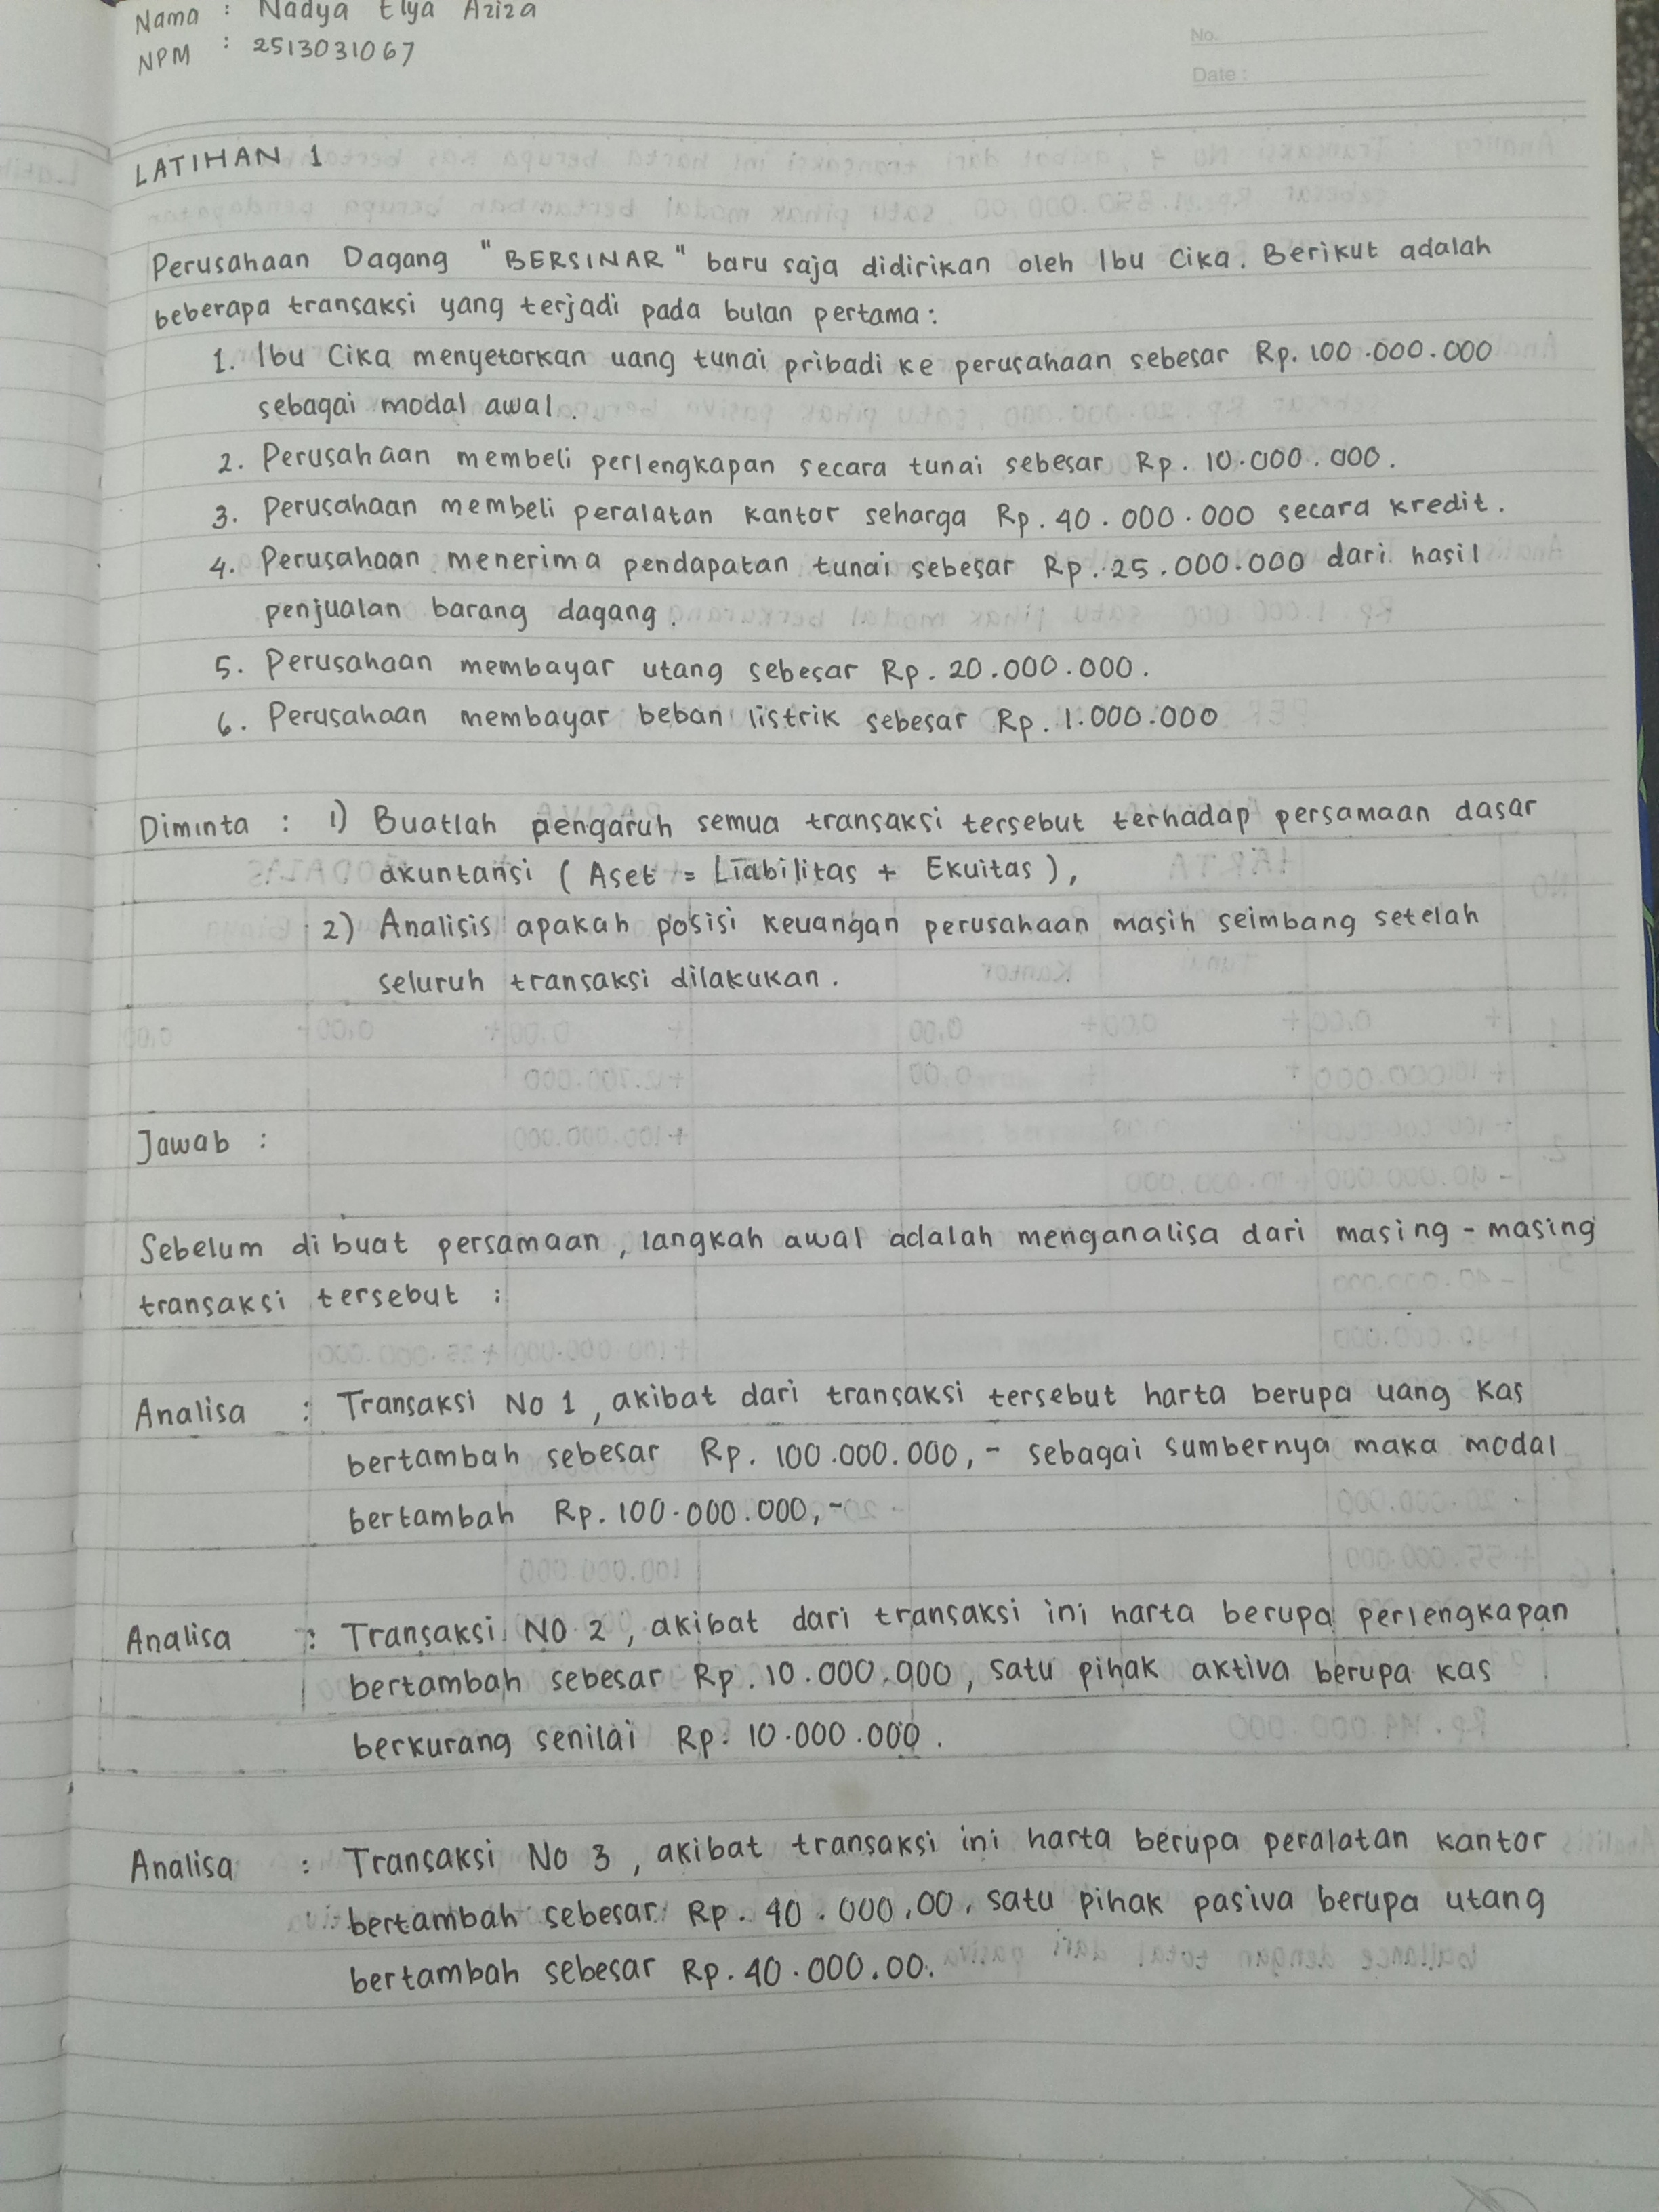 Nama : Nadya Elya Aziza
NPM : 2513031067
No.
Date :
LATIHAN 1
Perusahaan Dagang "BERSINAR" baru saja didirikan oleh Ibu Cika. Berikut adalah
beberapa transaksi yang terjadi pada bulan pertama :
1. Ibu Cika menyetorkan uang tunai pribadi ke perusahaan sebesar Rp. 100.000.000
sebagai modal awal.
2. Perusahaan membeli perlengkapan secara tunai sebesar Rp. 10.000.000.
3. Perusahaan membeli peralatan kantor seharga Rp. 40.000.000 secara kredit.
4. Perusahaan menerima pendapatan tunai sebesar Rp. 25.000.000 dari hasil
penjualan barang dagang.
5. Perusahaan membayar utang sebesar Rp. 20.000.000.
6. Perusahaan membayar beban listrik sebesar Rp. 1.000.000
Diminta : 1) Buatlah pengaruh semua transaksi tersebut terhadap persamaan dasar
akuntansi ( Aset = Liabilitas + Ekuitas ),
2) Analisis apakah posisi keuangan perusahaan masih seimbang setelah
seluruh transaksi dilakukan.
Jawab :
Sebelum dibuat persamaan, langkah awal adalah menganalisa dari masing - masing
transaksi tersebut :
Analisa : Transaksi No 1, akibat dari transaksi tersebut harta berupa uang kas
bertambah sebesar Rp. 100.000.000, - sebagai sumbernya maka modal
bertambah Rp. 100.000.000, -
Analisa : Transaksi No 2, akibat dari transaksi ini harta berupa perlengkapan
bertambah sebesar Rp. 10.000.000, satu pihak aktiva berupa kas
berkurang senilai Rp. 10.000.000.
Analisa : Transaksi No 3, akibat transaksi ini harta berupa peralatan kantor
bertambah sebesar Rp. 40.000,00, satu pihak pasiva berupa utang
bertambah sebesar Rp. 40.000.00.